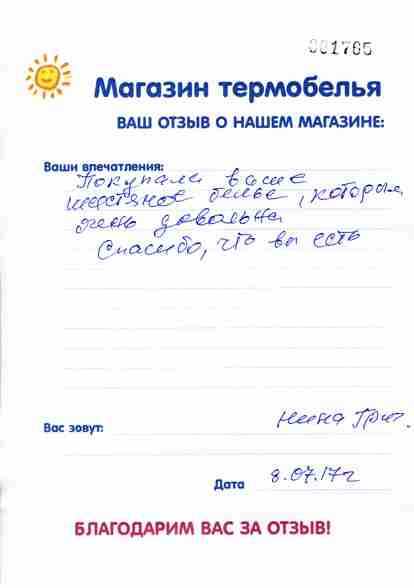 001765
Магазин термобелья
ВАШ ОТЗЫВ О НАШЕМ МАГАЗИНЕ:
Ваши впечатления:
Покупали ваше
шерстяное белье, которым
очень довольна
Спасибо, что вы есть
Вас зовут: Нина Григ.
Дата 8.07.17г
БЛАГОДАРИМ ВАС ЗА ОТЗЫВ!